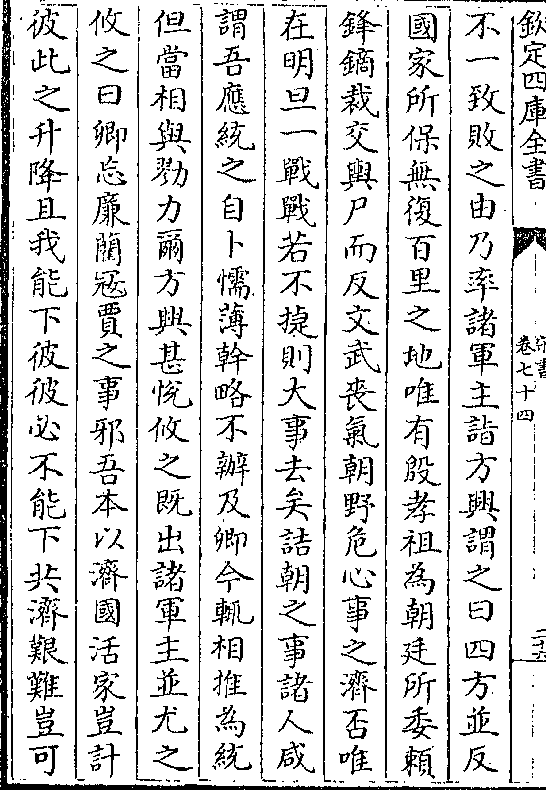 欽定四庫全書
宋書
卷七十四
不一致敗之由乃率諸軍主詣方興謂之曰四方並反
國家所保無復百里之地唯有殷孝祖為朝廷所委賴
鋒鏑裁交輿尸而反文武喪氣朝野危心事之濟否唯
在明旦一戰戰若不㨗則大事去矣詰朝之事諸人咸
謂吾應統之自卜懦薄幹略不辦及卿今輒相推為統
但當相與勠力爾方興甚恱攸之既出諸軍主並尤之
攸之曰卿忘廉藺冦賈之事邪吾本以濟國活家豈計
彼此之升降且我能下彼彼必不能下共濟艱難豈可